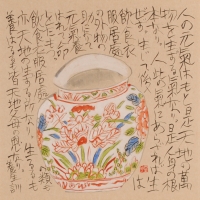 人の元気は、もと是天地の萬
物を生ずる気なり。是人身の根
本なり。人、此気にあらざれば生
ぜず。生じて後は、
飲食、衣
服、居處
の外物の
助によりて、
元気養
はれて命
をたもつ。
飲食、衣服、居處の
類も、
亦天地の生ずる所なり。生るるも
養はるるも皆天地父母の恩なり。養生訓